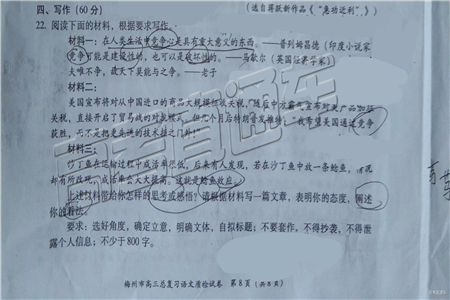 四、写作(60分)
(选自蒋跃新作品《“急功近利”》)
22. 阅读下面的材料，根据要求写作。
材料一：在人类生活中竞争心是具有重大意义的东西。——普列姆昌德(印度小说家
竞争可能是建设性的，也可以是破坏性的。——马歇尔(英国经济学家)
夫唯不争，故天下莫能与之争。——老子
材料二：
美国宣布将对从中国进口的商品大规模征收关税，随后中方
关税，直接开启了贸易战的对战模式，但几个月后特朗普发推特：“我希望美国通过竞争
获胜，而不是把更先进的技术挡之门外！”
材料三：
沙丁鱼在运输过程中成活率很低，后来有人发现，若在沙丁鱼中放一条鲶鱼，情况
都有所改观，成活率会大大提高，这就是鲶鱼效应。
上述材料带给你怎样的思考或感悟？请根据材料写一篇文章，表明你的态度，阐述
你的看法。
要求：选好角度，确定立意，明确文体，自拟标题；不要套作，不得抄袭，不得泄
露个人信息；不少于800字。
梅州市高三总复习语文质检试卷 第8页(共8页)